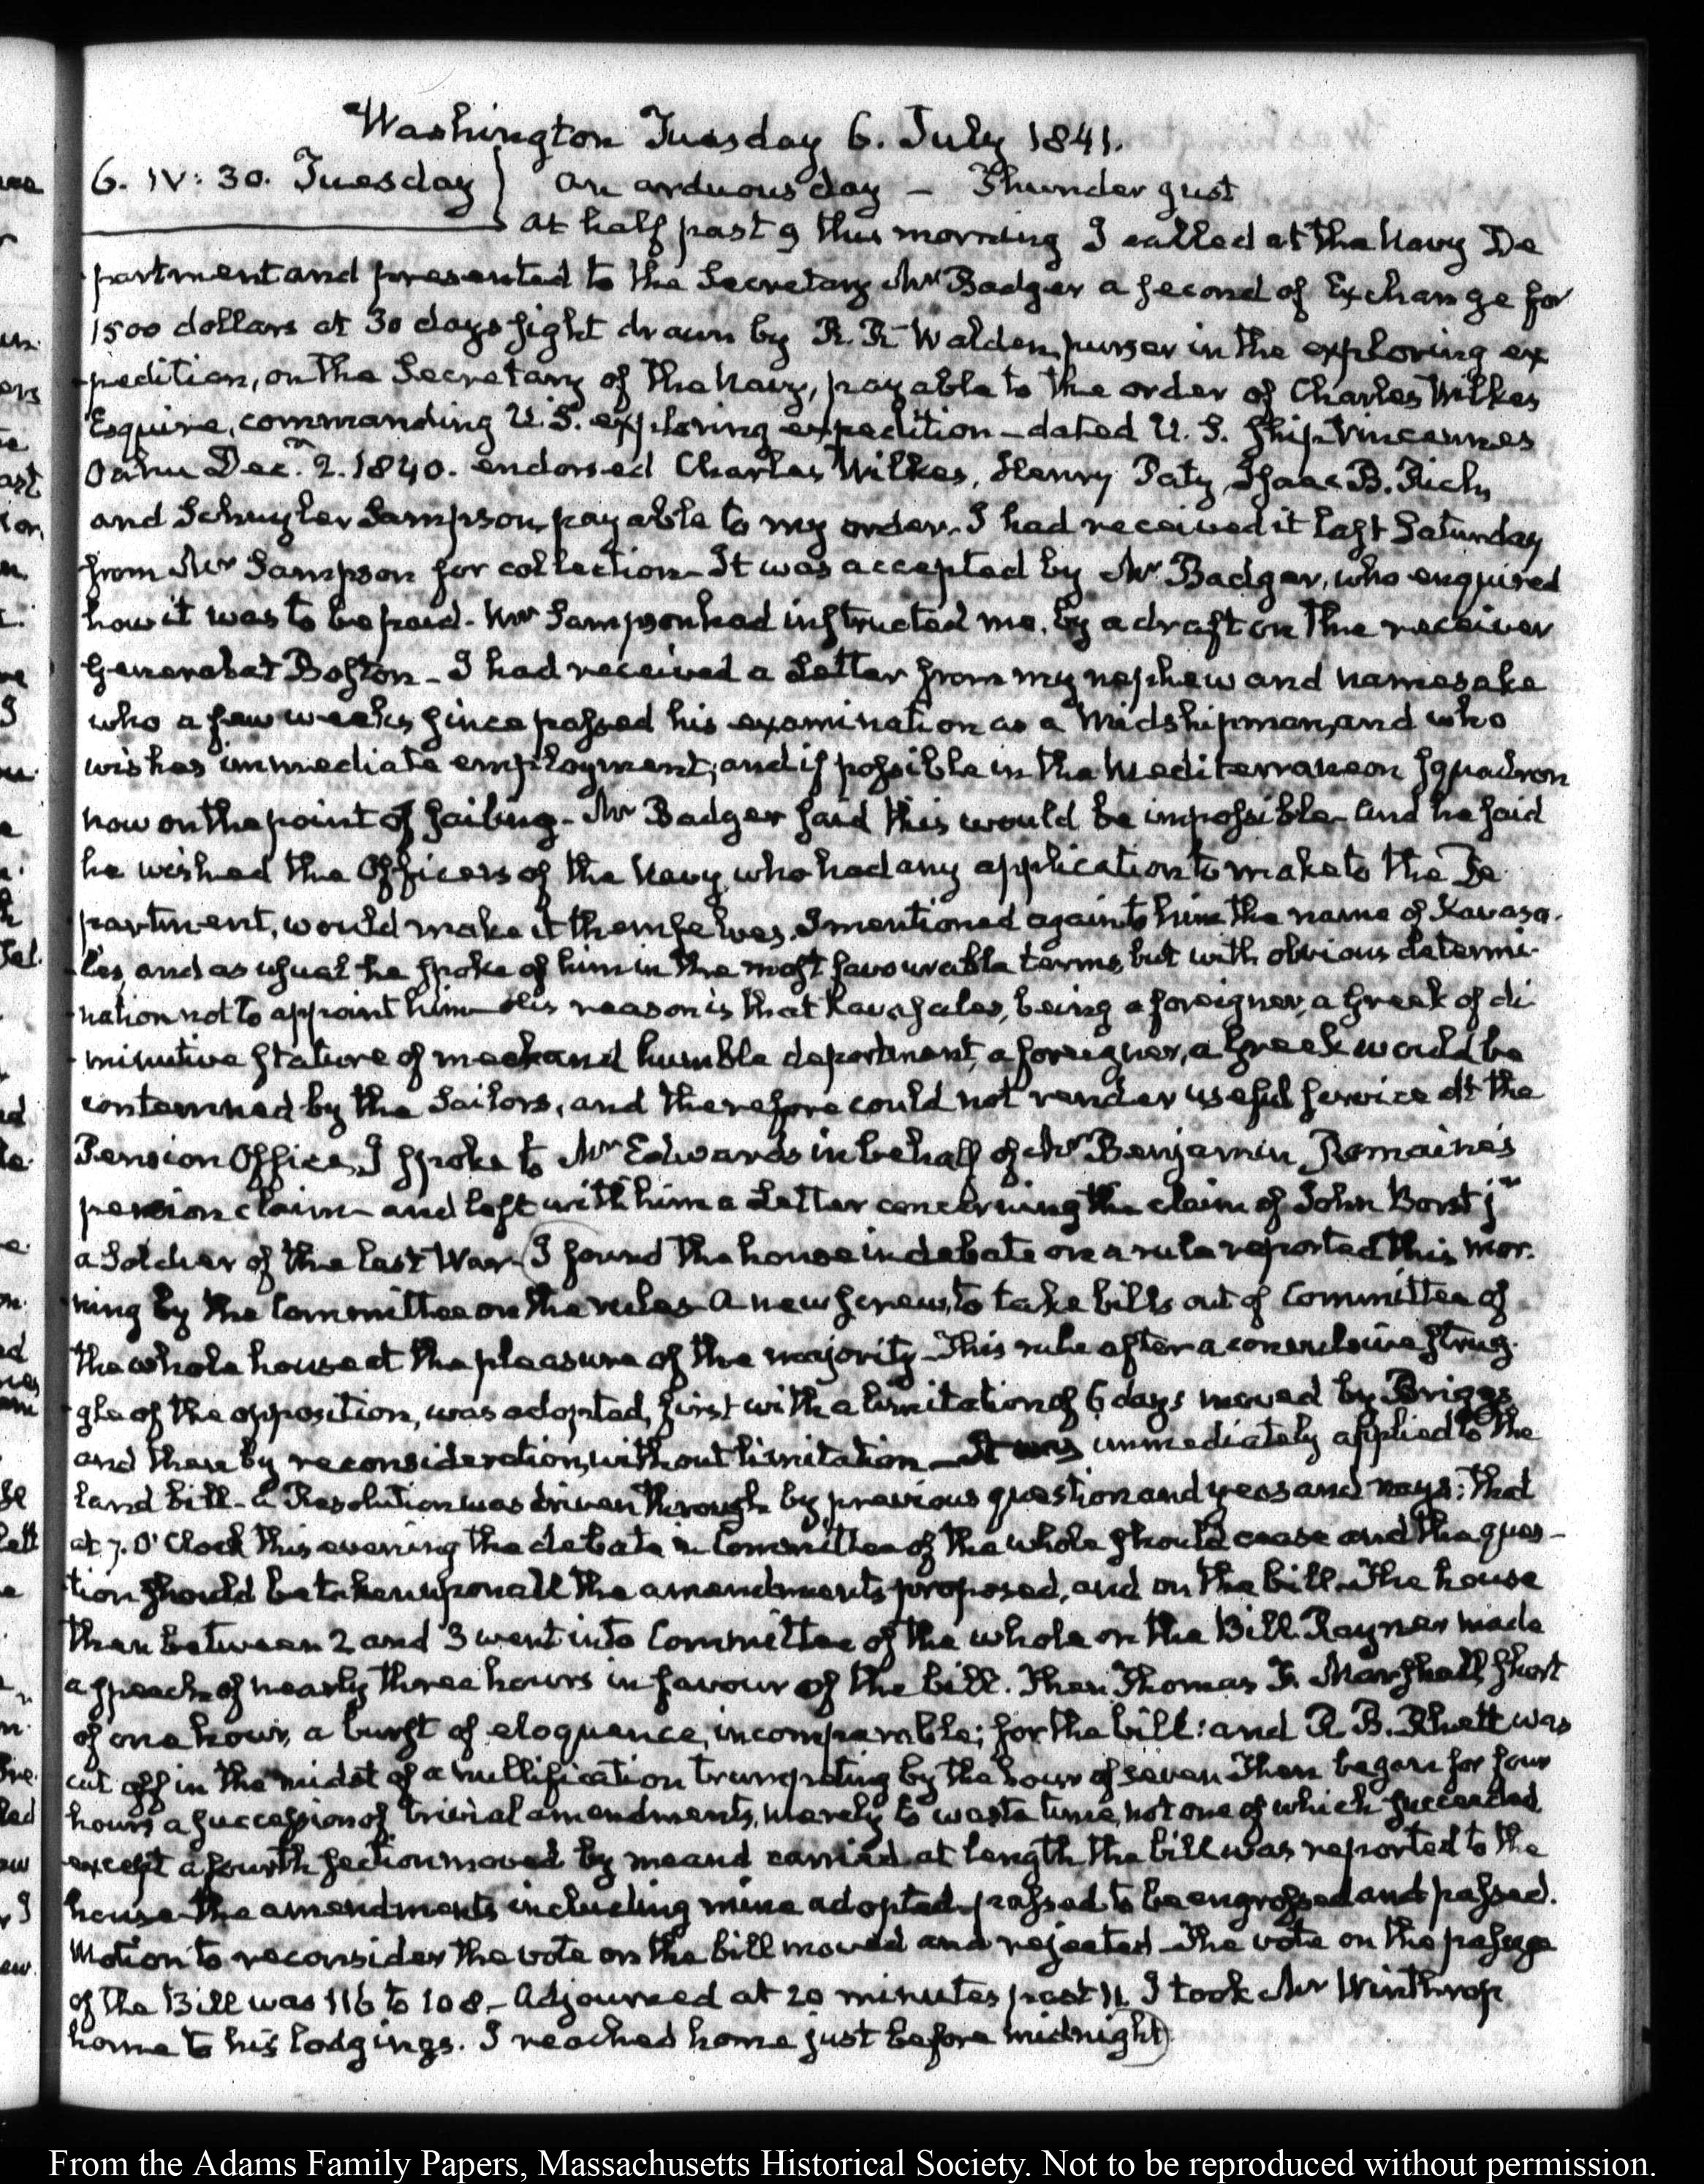 Washington Tuesday 6. July 1841.
6. IV: 30. Tuesday } An arduous day — Thunder gust
At half past 9 this morning I called at the Navy De
partment and presented to the Secretary Mr Badger a second of Exchange for
1500 dollars at 30 days sight drawn by R. R Walden, purser in the exploring ex
pedition, on the Secretary of the Navy, payable to the order of Charles Wilkes
Esquire, commanding U.S. exploring expedition — dated U. S. Ship Vincennes
Oahu Dec. 2. 1840. endorsed Charles Wilkes, Henry Paty, Isaac B. Rich,
and Schuyler Sampson, payable to my order. I had received it last Saturday
from Mr Sampson for collection — It was accepted by Mr Badger, who enquired
how it was to be paid. Mr Sampson had instructed me, by a draft on the receiver
General at Boston — I had received a Letter from my nephew and namesake
who a few weeks since passed his examination as a Midshipman, and who
wishes immediate employment, and if possible in the Mediterranean squadron
now on the point of sailing — Mr Badger said this would be impossible and he said
he wished the Officers of the Navy who had any application to make to the De
partment, would make it themselves. I mentioned again to him the name of Kavasa-
les, and as usual he spoke of him in the most favourable terms but with obvious determi-
nation not to appoint him — His reason is that Kavasales, being a foreigner, a Greek of di
minutive stature of meek and humble deportment, a foreigner, a Greek would be
contemned by the Sailors, and therefore could not render useful service At the
Pension Office, I spoke to Mr Edwards in behalf of Mr Benjamin Romaine's
pension claim and left with him a Letter concerning the claim of John Borst jr
a Soldier of the last War — (I found the house in debate on a rule reported this mor-
ning by the Committee on the rules A new screw, to take bills out of Committee of
the whole house at the pleasure of the majority — This rule after a convulsive strug-
gle of the opposition, was adopted, first with a limitation of 6 days moved by Briggs
and then by reconsideration, without limitation — It was immediately applied to the
land bill — A Resolution was driven through by previous question and yeas and nays: that
at 7. O'Clock this evening the debate in Committee of the whole should cease and the ques-
tion should be taken upon all the amendments proposed, and on the bill. The house
then between 2 and 3 went into Committee of the whole on the Bill. Rayner made
a speech of nearly three hours in favour of the bill. Then Thomas F. Marshall, short
of one hour, a burst of eloquence, incomparable; for the bill: and R B. Rhett was
cut off in the midst of a nullification trumpeting by the hour of seven Then began for four
hours a succession of trivial amendments, merely to waste time, not one of which succeeded
except a fourth section moved by me and carried at length the bill was reported to the
house the amendments including mine adopted passed to be engrossed and passed.
Motion to reconsider the vote on the bill moved and rejected — The vote on the passage
of the Bill was 116 to 108 — Adjourned at 20 minutes past 11. I took Mr Winthrop
home to his lodgings. I reached home just before midnight)
From the Adams Family Papers, Massachusetts Historical Society. Not to be reproduced without permission.